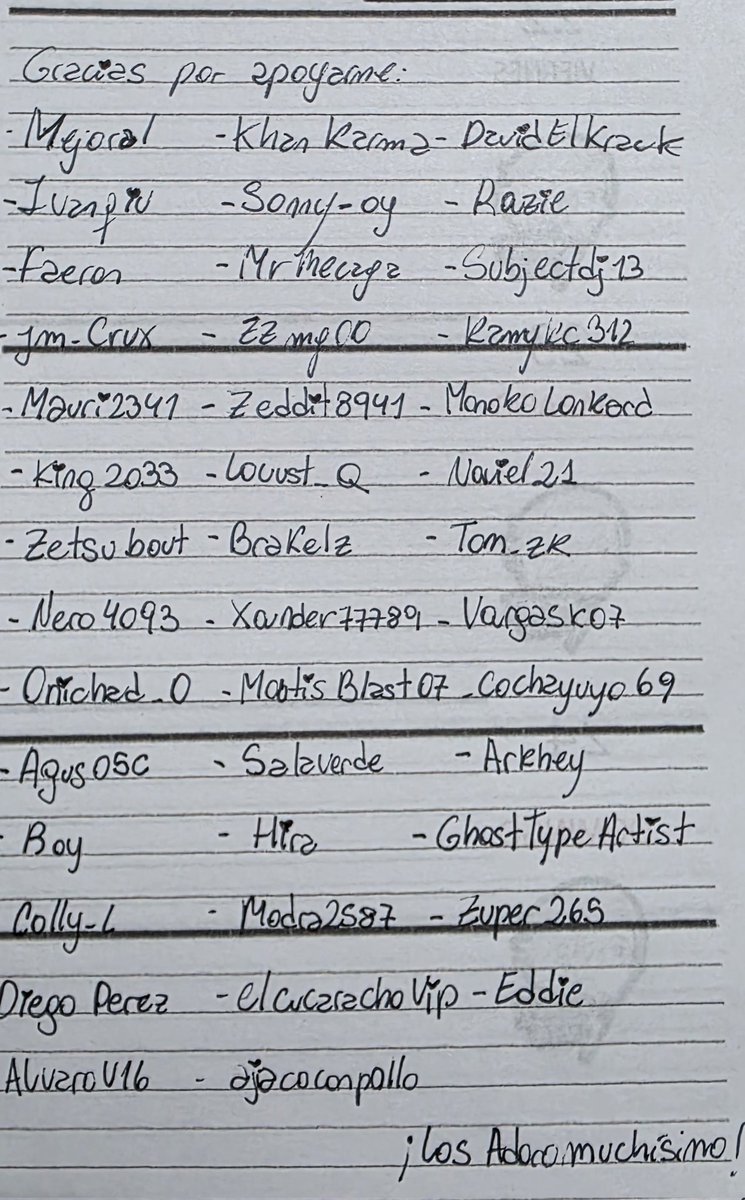 Gracias por apoyarme:
- Mejoral - Khan Karma - DavidElKrack
- Ivanfiv - Sonny-oy - Razie
- Faeron - MrThecaga - Subjectdj13
- jm-Crux - ZZmg00 - Ramykc312
- Mauri2341 - Zeddit8941 - Monoko Lonkard
- King2033 - Locust_Q - Naviel21
- Zetsubout - Brakelz - Tom_zk
- Nero4093 - Xander777891 - Vargask07
- Oriched_0 - MatisBlast07 - Cochayuyo69
- Agus05C - Salaverde - Arkhey
- Boy - Hira - GhostTypeArtist
Colly-L - Modra2587 - Zuper265
Diego Perez - elcucarachoVip - Eddie
AlvaroV16 - ajacoconpollo
¡Los Adoro muchísimo!